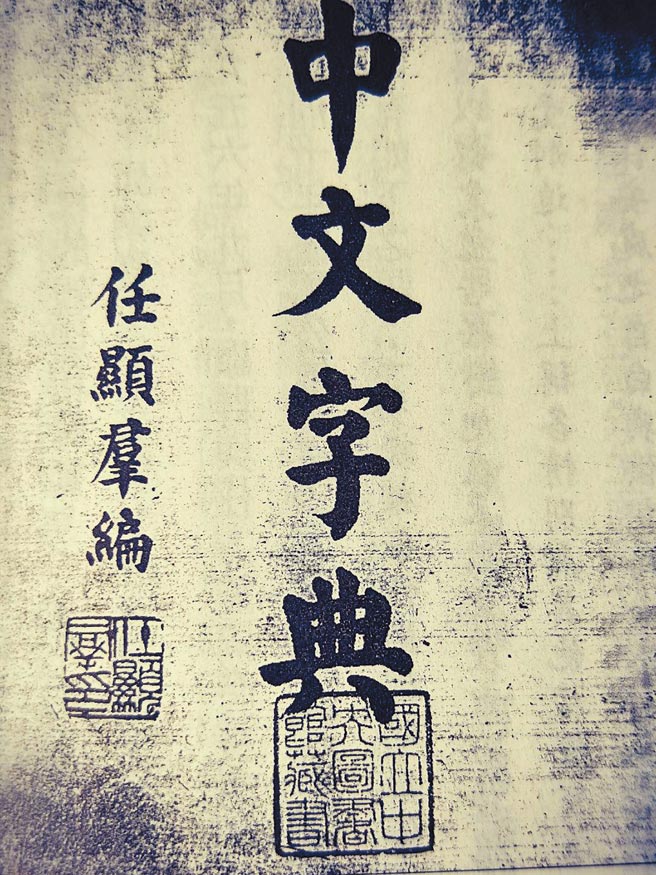 中文字典
國立中
央圖書
館藏書
任顯羣編
任顯
羣印